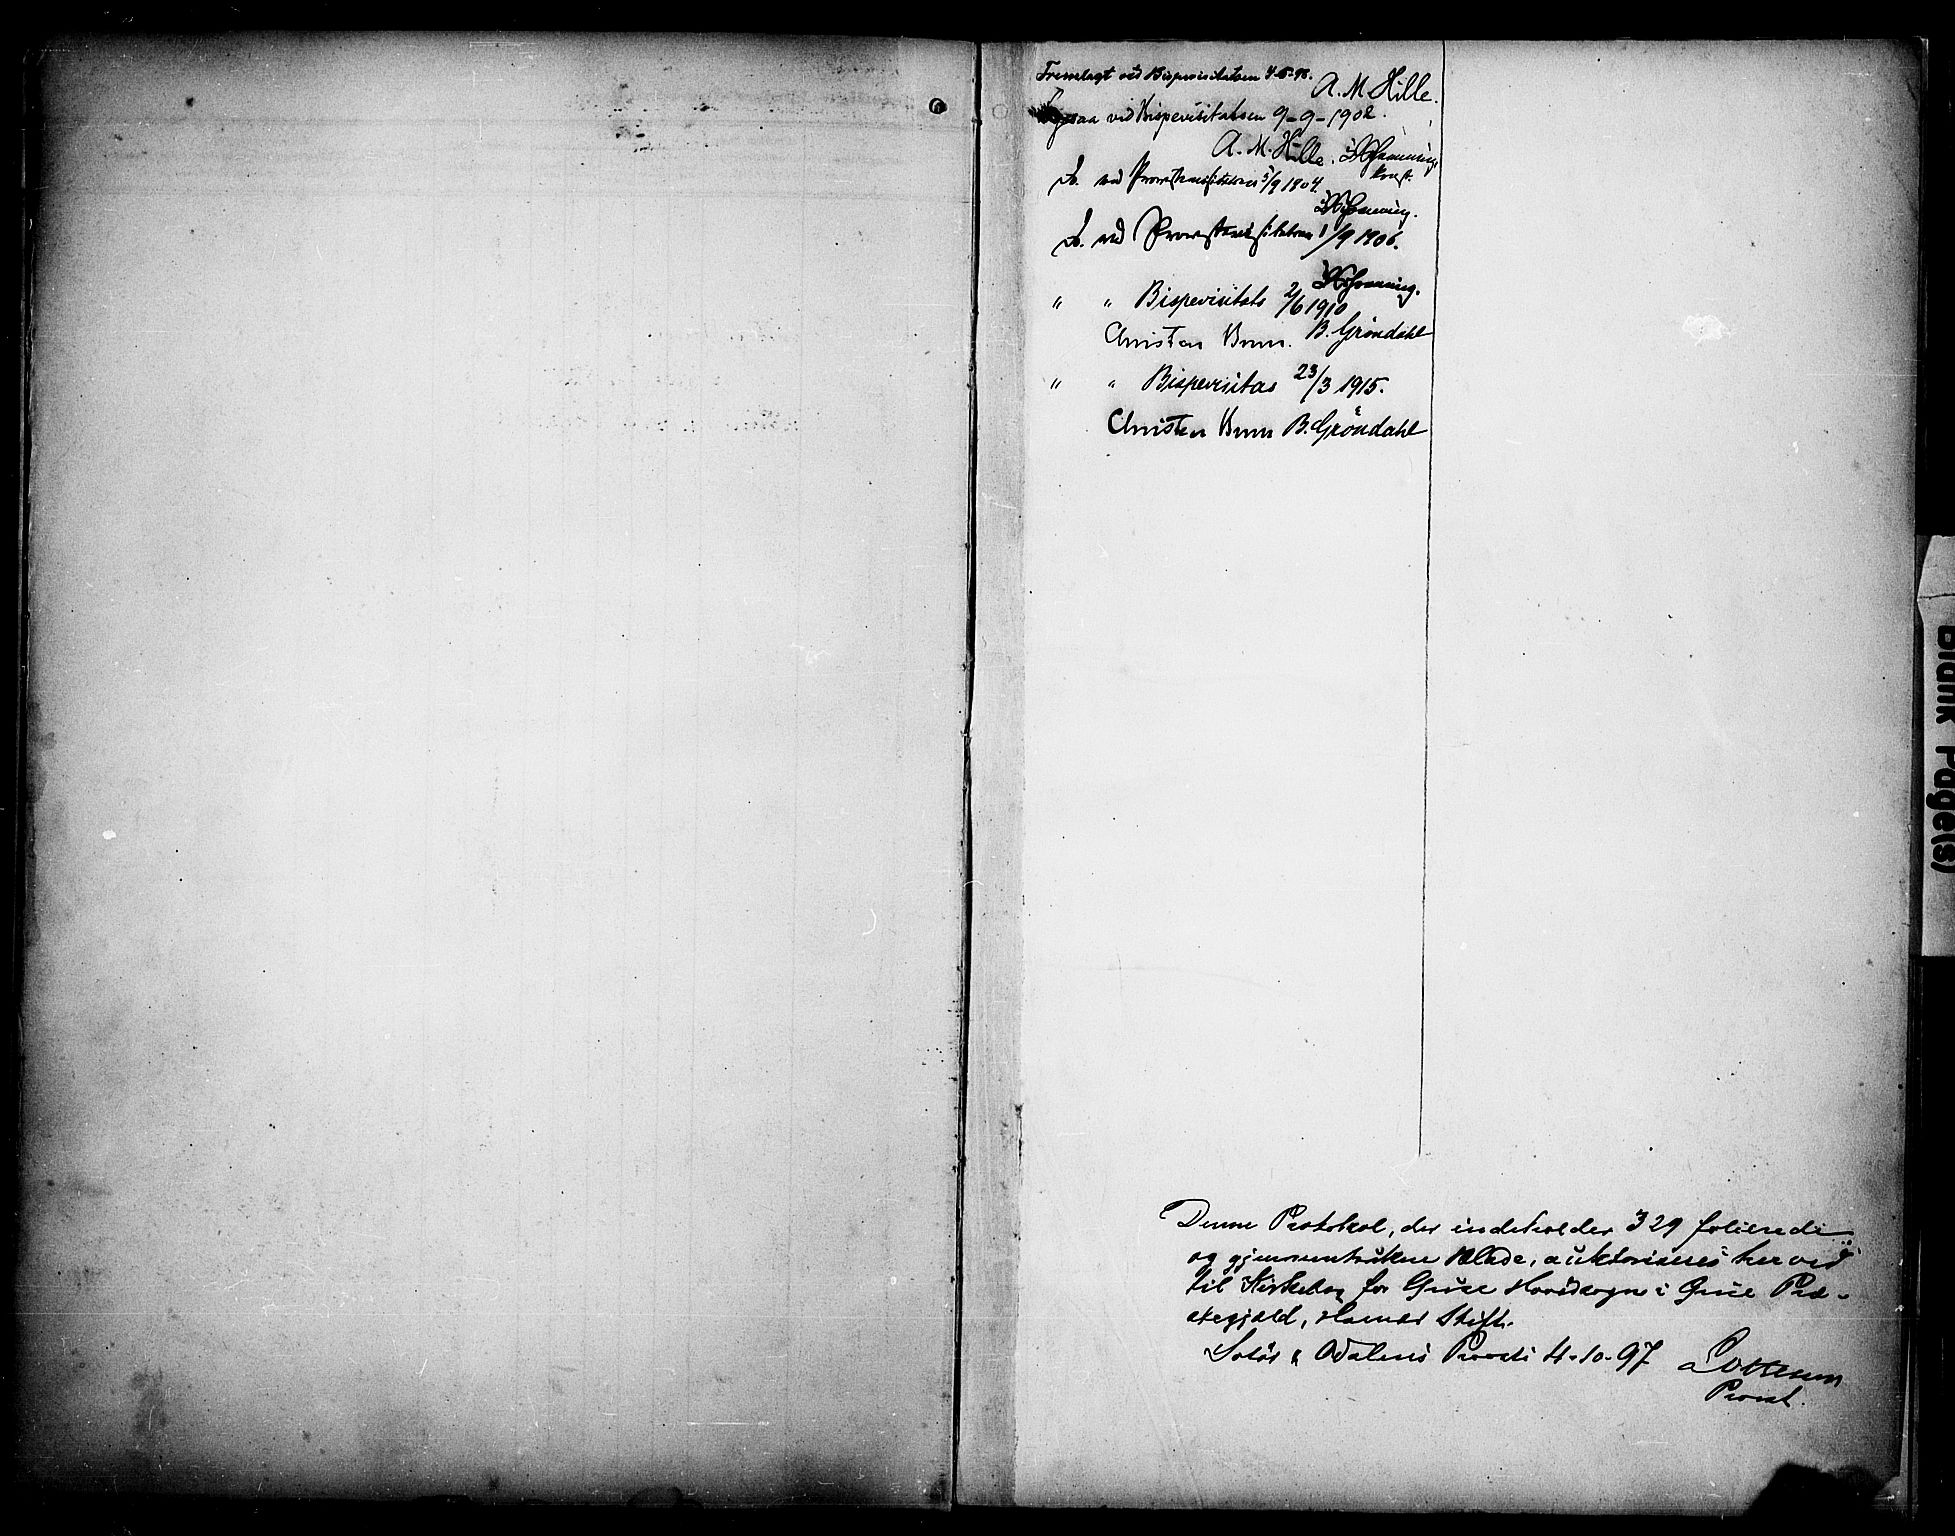 Fremlagt ved Bispevisitatsen 4-5-98.
A. M. Hille.
Ligesaa ved Bispevisitatsen 9-9-1902.
A. M. Hille.
Prost.
L. ved Provstevisitatsen 5/9 1904.
L. ved Provstevisitatsen 1/9 1906.
" " Bispevisitats 2/6 1910
Christen Brun. B. Gröndahl
" " Bispevisitas 23/3 1915.
Christen Brun B. Gröndahl
Denne Protokol, der indeholder 329 folierede
og gjennemtrukne Blade, auktoriseres herved
til Kirkebog for Grue Hovedsogn i Grue Præ-
stegjæld, Hamar Stift.
Solør & Odalens Provsti 4-10-97
Provst.
Blank Page(s)